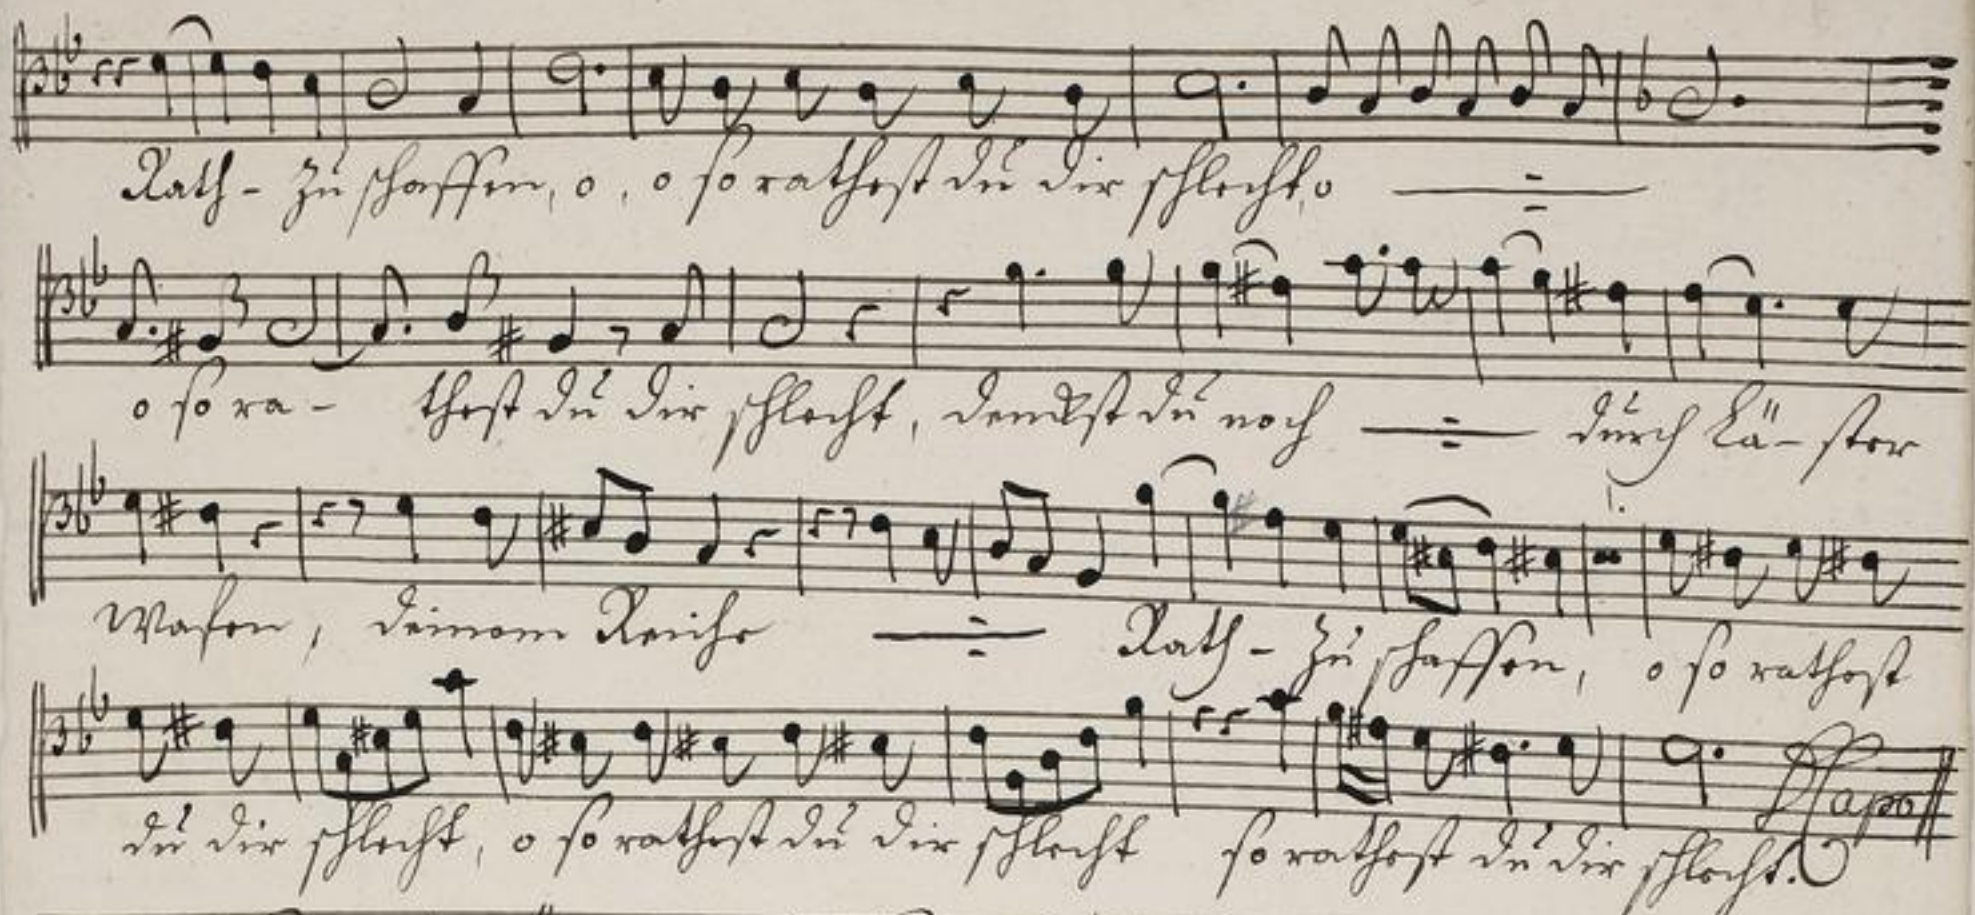 Rath- zu schaffen, o, o so rathest du dir schlecht, o
o so ra- thest du dir schlecht, denckst du noch durch Lä- ster
Wafen, deinem Reiche Rath- zu schaffen, o so rathest
du dir schlecht, o so rathest du dir schlecht so rathest du dir schlecht.
D Capo